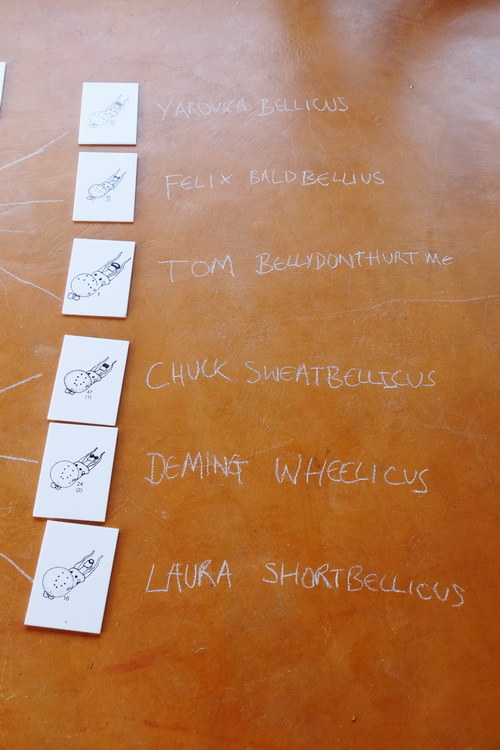 YAROUKA BELLICUS
FELIX BALDBELLIUS
TOM BELLYDONTHURT ME
CHUCK SWEATBELLICUS
47
(1)
DEMING WHEELICUS
24
(2)
LAURA SHORTBELLICUS
16